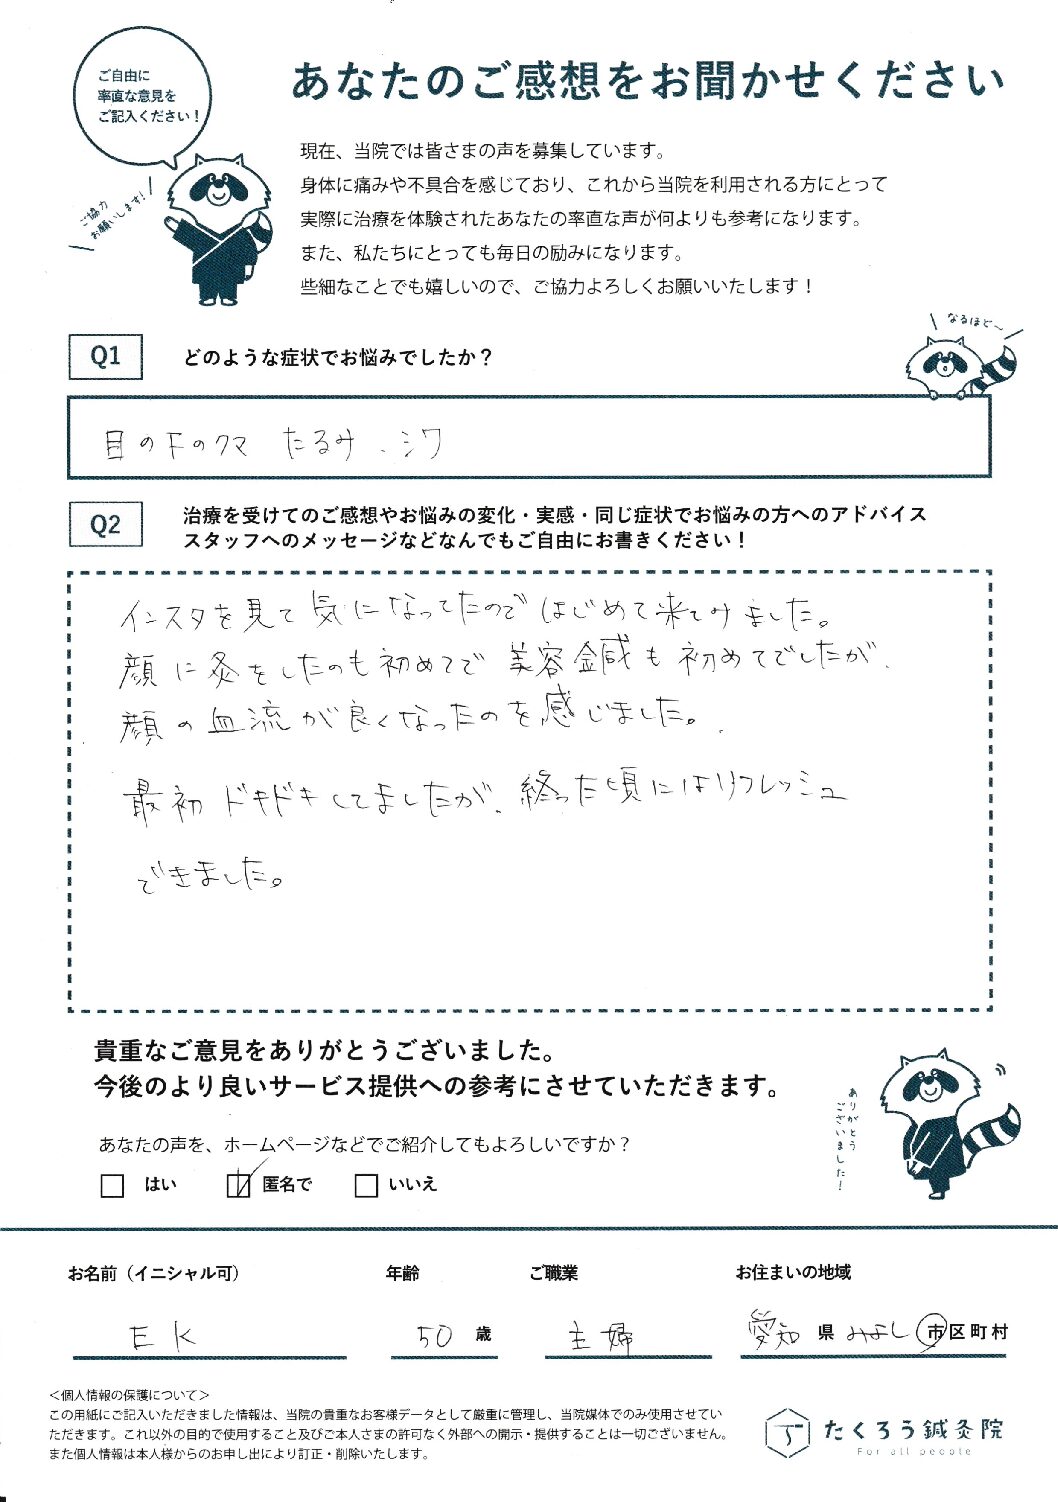 ご自由に
率直な意見を
ご記入ください！
ご協力
お願いします！
あなたのご感想をお聞かせください
現在、当院では皆さまの声を募集しています。
身体に痛みや不具合を感じており、これから当院を利用される方にとって
実際に治療を体験されたあなたの率直な声が何よりも参考になります。
また、私たちにとっても毎日の励みになります。
些細なことでも嬉しいので、ご協力よろしくお願いいたします！
なるほど〜
Q1 どのような症状でお悩みでしたか？
目の下のクマ たるみ、シワ
Q2 治療を受けてのご感想やお悩みの変化・実感・同じ症状でお悩みの方へのアドバイス
スタッフへのメッセージなどなんでもご自由にお書きください！
インスタを見て気になってたのではじめて来てみました。
顔に灸をしたのも初めてで美容鍼も初めてでしたが、
顔の血流が良くなったのを感じました。
最初ドキドキしてましたが、終った頃にはリフレッシュ
できました。
貴重なご意見をありがとうございました。
今後のより良いサービス提供への参考にさせていただきます。
ありがとう
ございました！
あなたの声を、ホームページなどでご紹介してもよろしいですか？
はい 匿名で いいえ
お名前（イニシャル可） 年齢 ご職業 お住まいの地域
E K 50 歳 主婦 愛知 県 みよし 市区町村
＜個人情報の保護について＞
この用紙にご記入いただきました情報は、当院の貴重なお客様データとして厳重に管理し、当院媒体でのみ使用させてい
ただきます。これ以外の目的で使用すること及びご本人さまの許可なく外部への開示・提供することは一切ございません。
また個人情報は本人様からのお申し出により訂正・削除いたします。
たくろう鍼灸院
For all people